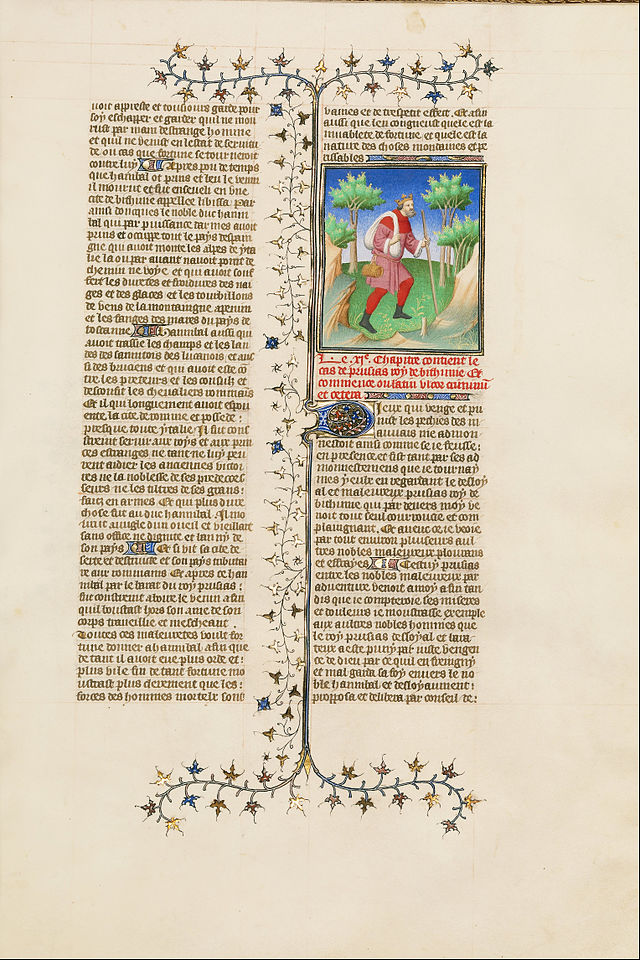 uoit appreste et tousiours garde pour
soy eschapper et garder quil ne mou
rust par main destrange homme
et quil ne venist en lestat de seruitu
de ou cas que fortune se tourneroit
contre luy Apres pou de temps
que hanibal ot prins et beu le venin
il mourut et fut enseueli en vne
cite de bithinie appellee libissa par
ainsi doncques le noble duc hanni
bal qui par puissance darmes auoit
prins et occuppe tout le pays despai
gne qui auoit monte les alpes de yta
lie la ou par auant nauoit point de
chemin ne voye et qui auoit souf
fert les diuerses et froidures des nai
ges et des glaces et les tourbillons
de vens de la montaigne apenin
et les fanges des mares du pays de
toscanne Et hannibal aussi qui
auoit trassie les champs et les lan
des des samnitois des lucanois et aus
si des bruciens et qui auoit esse cō
tre les preteurs et les consulz et
desconfit les cheualiers rommains
Et il qui longuement auoit espou
ente la cite de romme et possede
presque toute ytalie Il fut con
straint seruir aux roys et aux prin
ces estranges ne tant ne luy peu
rent aidier les anciennes victoi
res ne la noblesse de ses predeces
seurs ne les tiltres de ses grans
fais en armes Et qui plus dure
chose fut au duc hannibal Il mo
rut auugle dun oueil et vieillart
sans office ne dignite et banny de
son pays Et si vit sa cite de
serte et destruite et son pays tributai
re aux rommains Et apres ce han
nibal par le barat du roy prusias
fut constraint aboire le venin a fin
quil boutast hors son ame de son
corps traueillie et meschant
Toutes ces maleuretes voult for
tune donner a hannibal a fin que
de tant il auoit eue plus orde et
plus vile fin de tant fortune mon
strast plus clerement que les
forces des hommes mortelz sont
vaines et de trespetit effect Et a fin
aussi que len congneust quele est la
muablete de fortune et quele est la
nature des choses mondaines et pe
rissables
Le .xi.e Chapitre contient le
cas de prusias roy de bithinie Et
commence ou latin vltor criminū
et cetera
Dieux qui venge et pu
nist les pechies des m
auuais me admon
nestoit ainsi comme se ie feusse
en presence et fist tant par ses ad
monnestemens que ie tournay
mes yeulx en regardant le desloy
al et maleureux prusias roy de
bithinie qui par deuers moy ve
noit tout seul courrouce et com
plaingnant Et auec ce ie veoie
par tout enuiron plusieurs aul
tres nobles maleureux plourans
et effrayes Cestuy prusias
entre les nobles maleureux par
aduenture venoit a moy a fin tan
dis que ie compteroie ses miseres
et douleurs ie moustrasse exemple
aux aultres nobles hommes que
le roy prusias desloyal et bara
teux a este puny par iuste vengen
ce de dieu par ce quil enfreigny
et mal garda sa foy enuers le no
ble hannibal et desloyaument
proposa et delibera par conseil de